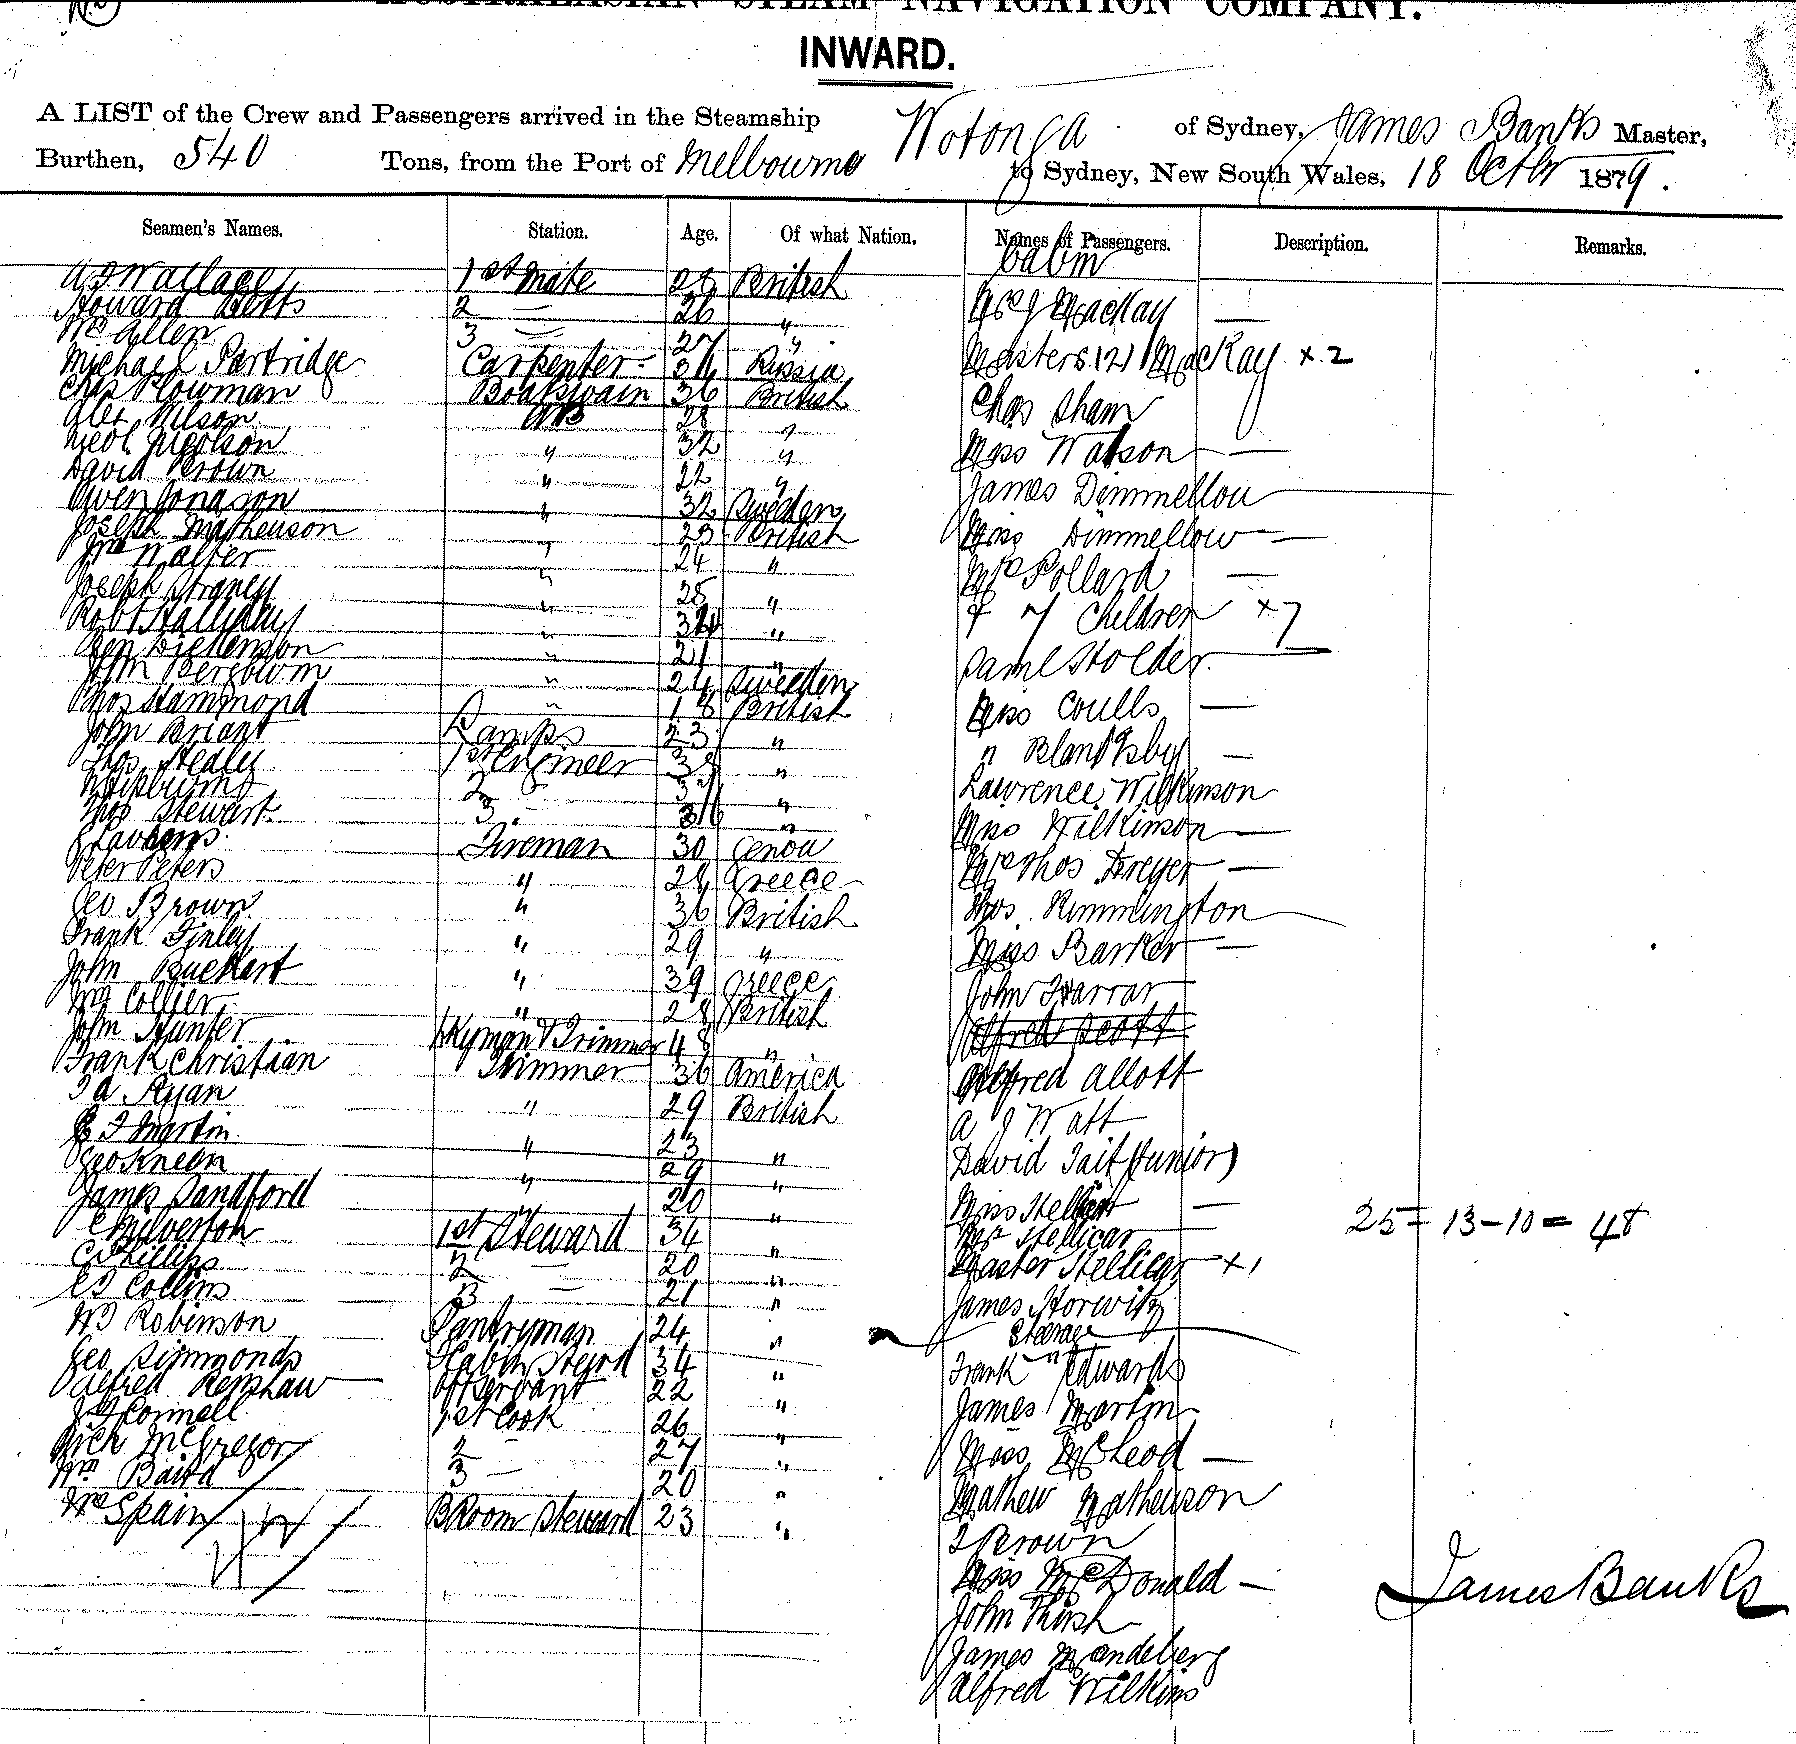 AUSTRALASIAN STEAM NAVIGATION COMPANY.
INWARD.
A LIST of the Crew and Passengers arrived in the Steamship Wotonga of Sydney, James Banks Master,
Burthen, 540 Tons, from the Port of Melbourne to Sydney, New South Wales, 18 Octbr 1879.
Seamen's Names. Station. Age. Of what Nation. Names of Passengers. Description. Remarks.
Cabin
Wallace 1st Mate 28 British
Howard Betts 2 — 26 "
Wm Allen 3 — 27 "
Michael Partridge Carpenter Russia
Chas Plowman Boatswain 36 British
Alex Nilson AB 28 "
Nicolson " 32 "
David Brown " 22 "
Owen Jonason " 32 Sweden
Joseph Matheuson " 23 British
Wm Walter " 24 "
Joseph " 25 "
Robt Halliday " "
Ben Dickenson " 21 "
John Bergbom " 24 Sweden
Thos Hammond " 18 British
John Briant Lamps 23 "
Thos Healey 1st Engineer "
2 "
Thos Stewart 3 "
Fireman 30 Genoa
Peter Peters " 28 Greece
Geo Brown " 36 British
Frank Finley " 29 "
John " 39 Greece
Wm Collier " 28 British
John Hunter & Trimmer 48 "
Frank Christian Trimmer 36 America
Ryan " 29 British
Martin " 23 "
Geo Kneen " 29 "
James Sandford " 20 "
C Milverton 1st Steward 34 "
C Phillips 2 — 20 "
Collins 3 — 21 "
Robinson Pantryman 24 "
Geo Simmonds 34 "
Alfred Renshaw Servant 22 "
Connell 1st Cook 26 "
Rich McGregor 2 — 27 "
Wm Baird 3 — 20 "
Wm Spain B Room Steward 23 "
MacKay —
Masters (2) MacKay x 2
Chas Sham
Miss Watson —
James Dimmellou
Miss Dimmellow —
Mrs Pollard —
& 7 Children x 7
Saml Holder
Miss Coulls —
" Blanksby —
Lawrence Wilkinson
Miss Wilkinson —
Mrs Thos Dreyer —
Thos Rimmington
Miss Barker —
John Farrar
Alfred Scott
Alfred Allott
A J Watt
David Tait (Junior)
Miss —
Mr Stellicar
Master Stellicar x 1
James Horwitz
25 - 13 - 10 = 48
Steerage
Frank Edwards
James Martin
Miss McLeod —
Mathew Matheuson
Brown
Miss McDonald —
John
James Mandelberg
Alfred Wilkins
James Banks